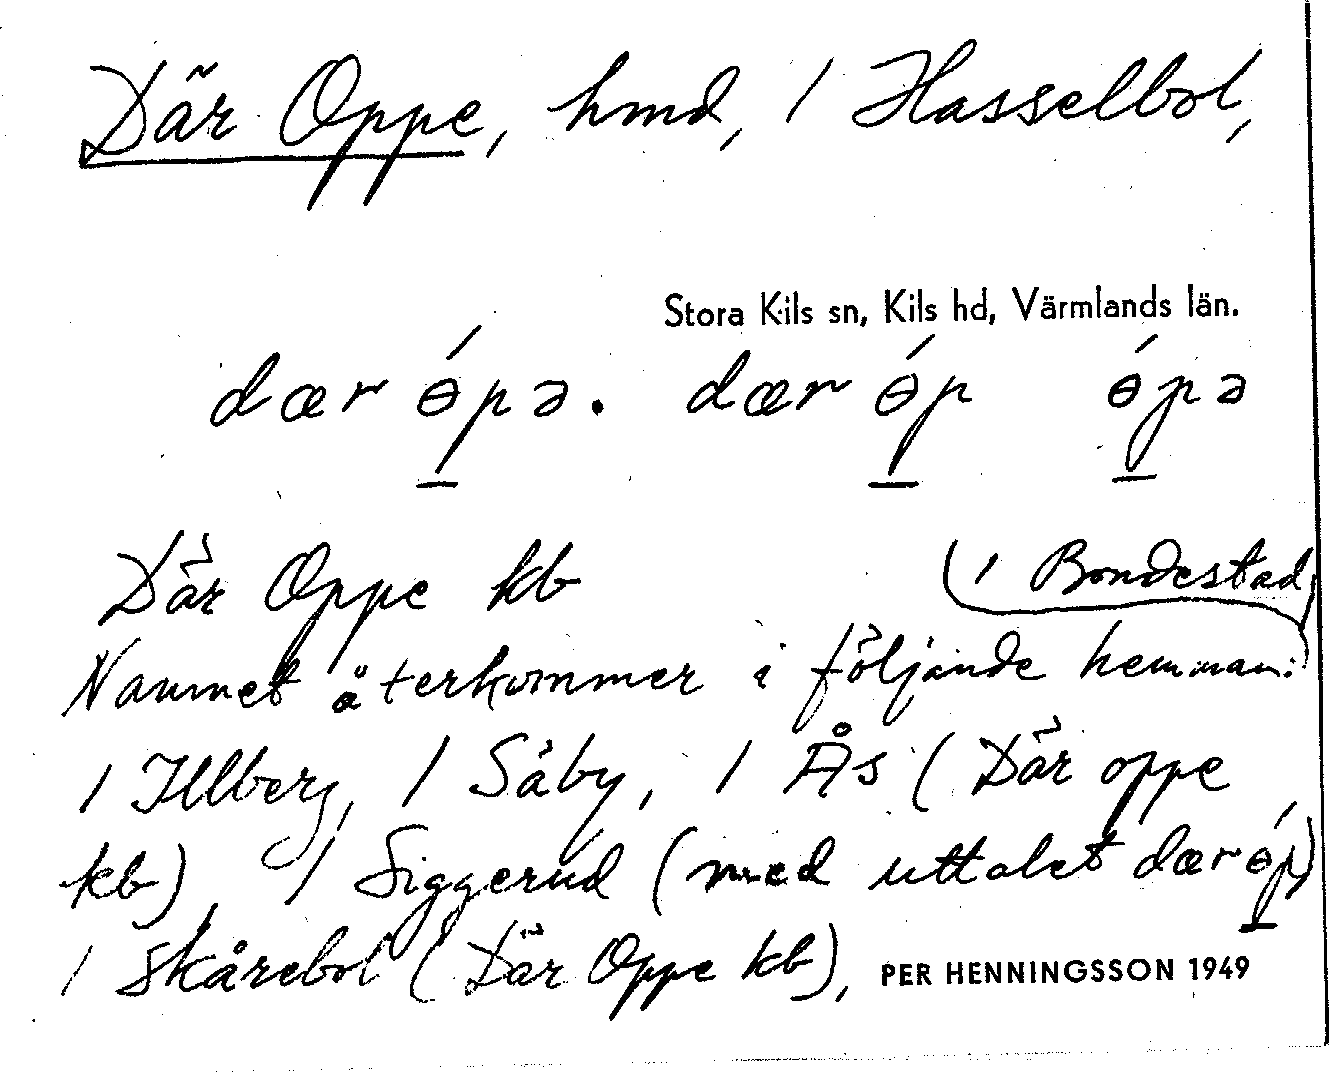 Där Oppe, hmd, 1 Hasselbol,
Stora Kils sn, Kils hd, Värmlands län.
dær ɵ́pə. dær ɵ́p ɵ́pə
Där Oppe kb (1 Bondestad)
Namnet återkommer i följande hemman:
1 Illberg, 1 Såby, 1 Ås (Där oppe
kb), 1 Siggerud (med uttalet dær ɵ́p)
1 Skårebol (Där Oppe kb),
PER HENNINGSSON 1949